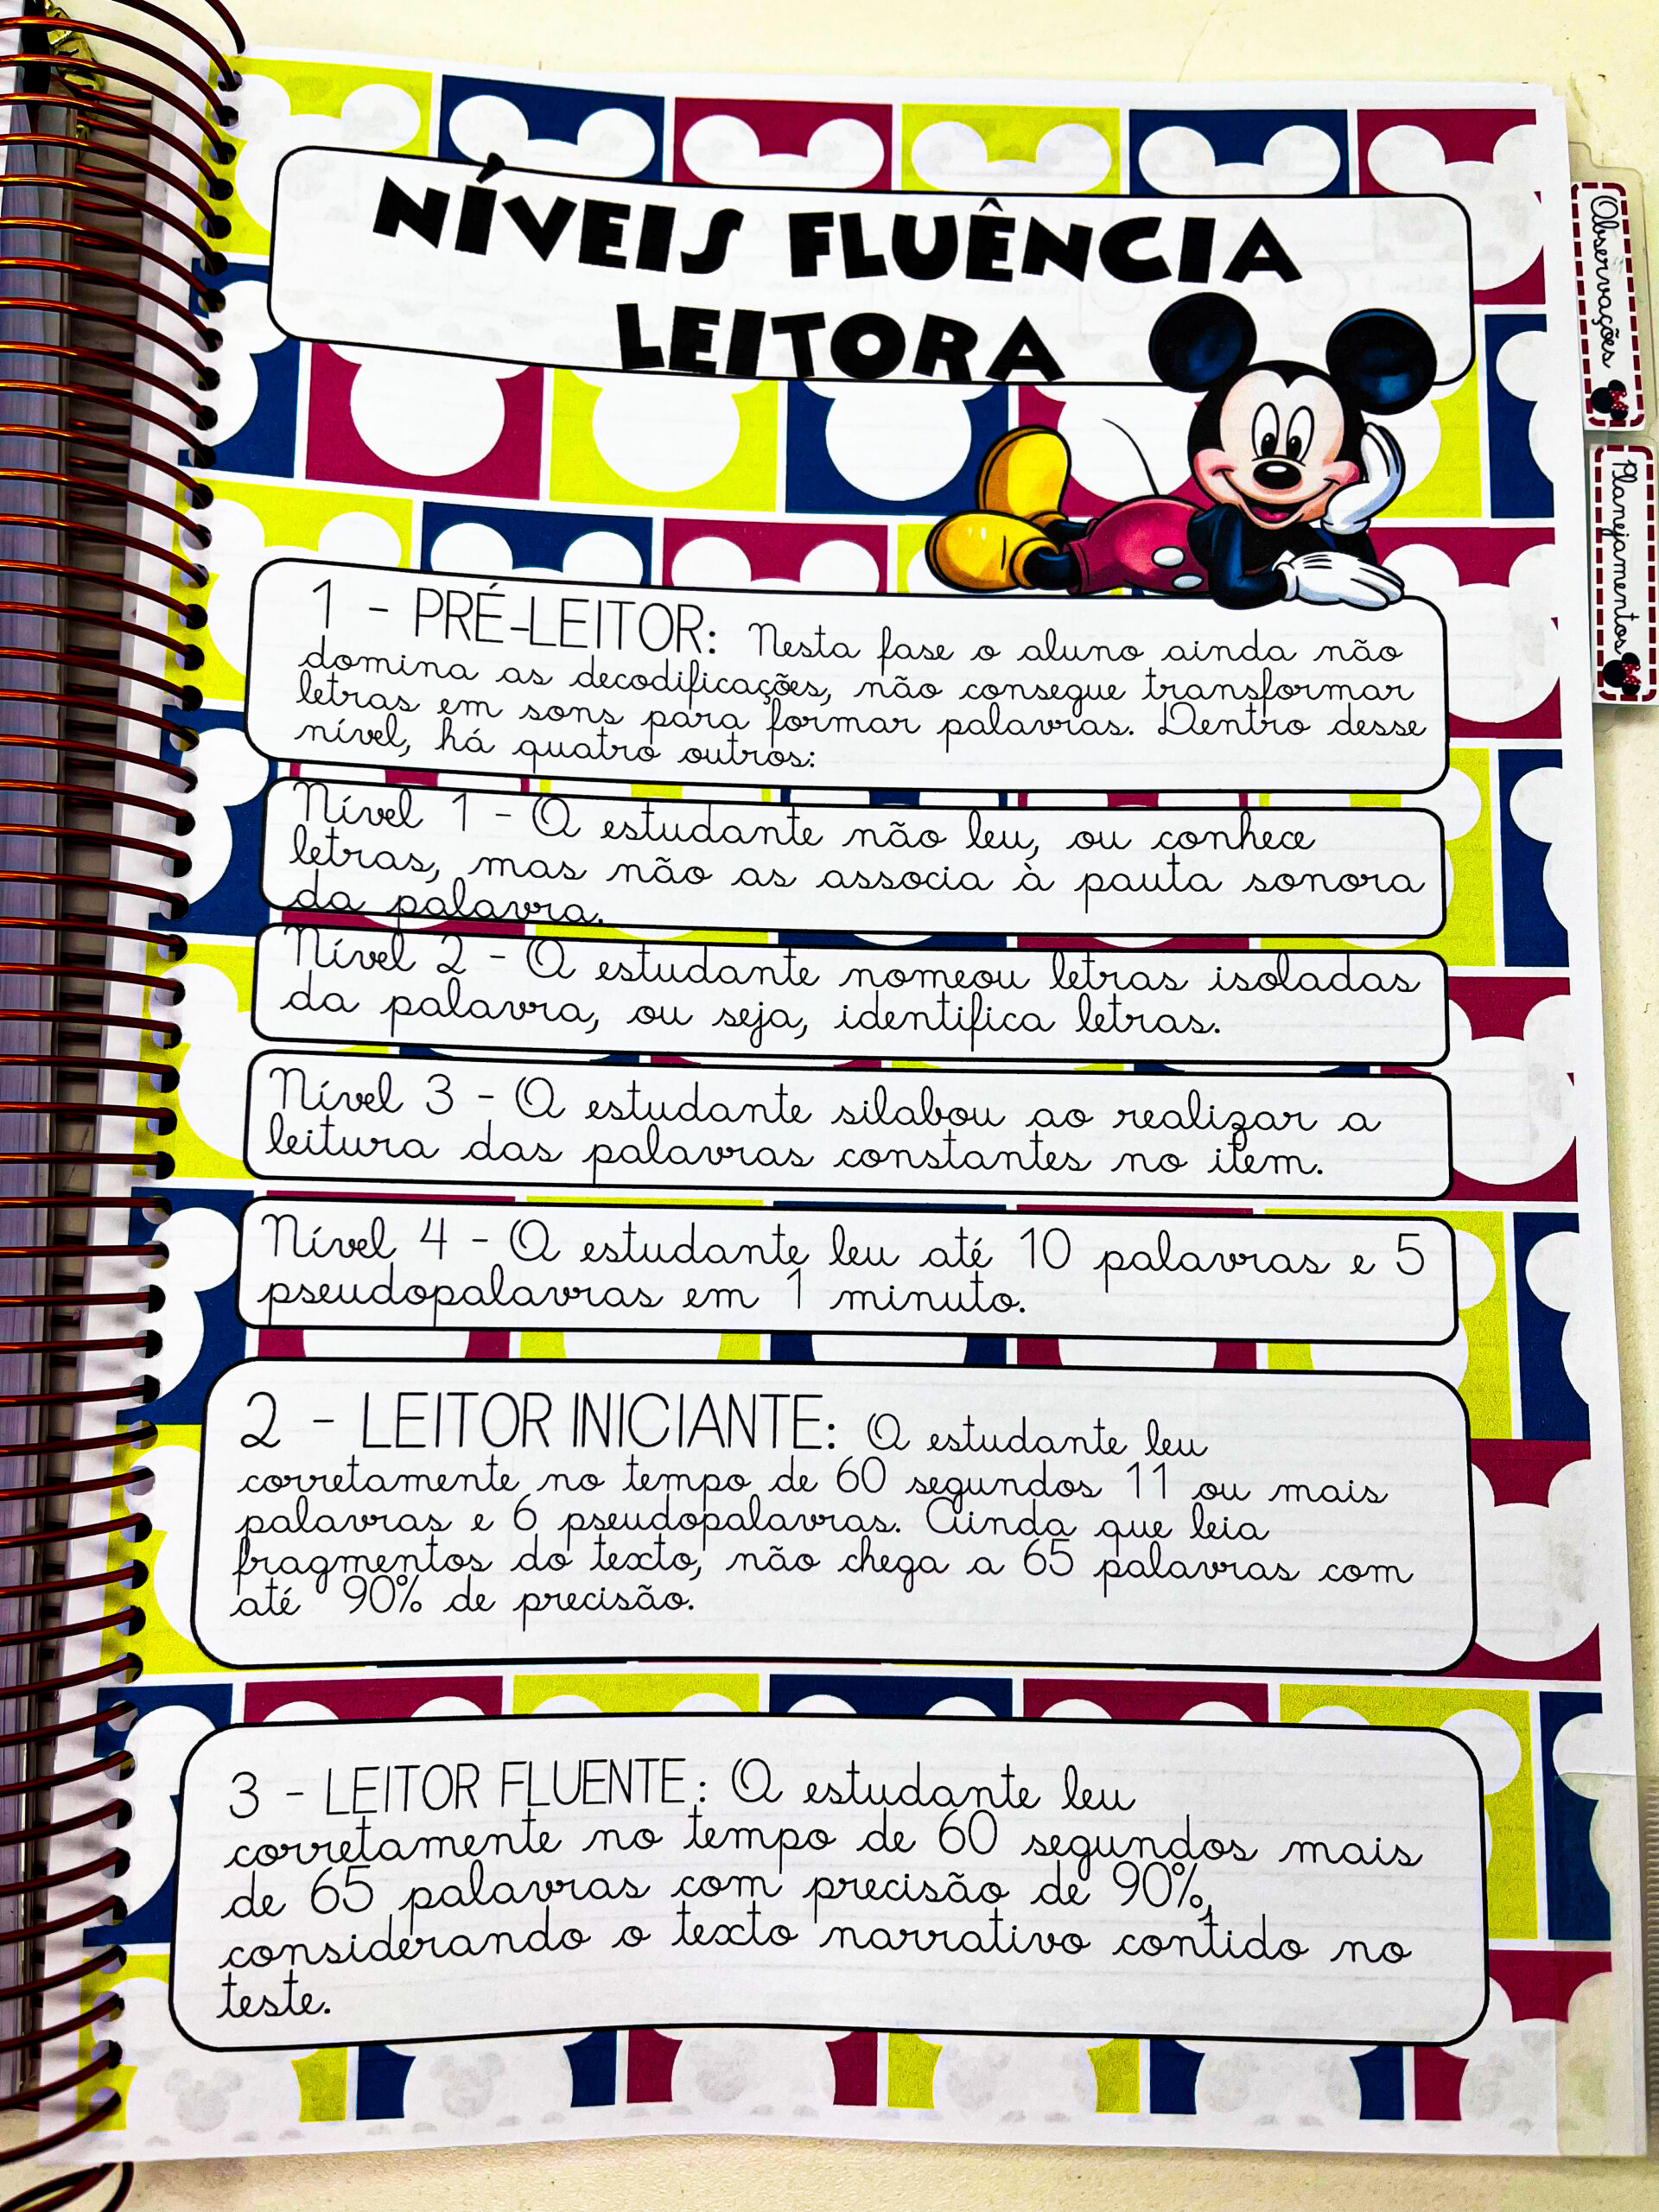 NÍVEIS FLUÊNCIA
LEITORA
1 - PRÉ-LEITOR: Nesta fase o aluno ainda não
domina as decodificações, não consegue transformar
letras em sons para formar palavras. Dentro desse
nível, há quatro outros:
Nível 1 - O estudante não leu, ou conhece
letras, mas não as associa à pauta sonora
da palavra.
Nível 2 - O estudante nomeou letras isoladas
da palavra, ou seja, identifica letras.
Nível 3 - O estudante silabou ao realizar a
leitura das palavras constantes no item.
Nível 4 - O estudante leu até 10 palavras e 5
pseudopalavras em 1 minuto.
2 - LEITOR INICIANTE: O estudante leu
corretamente no tempo de 60 segundos 11 ou mais
palavras e 6 pseudopalavras. Ainda que leia
fragmentos do texto, não chega a 65 palavras com
até 90% de precisão.
3 - LEITOR FLUENTE: O estudante leu
corretamente no tempo de 60 segundos mais
de 65 palavras com precisão de 90%,
considerando o texto narrativo contido no
teste.
Observações
Planejamentos